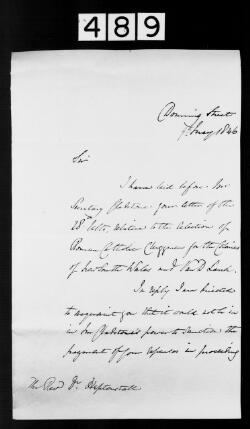 489
Downing Street
7 May 1846
Sir
I have laid before Mr
Secretary Gladstone your letter of the
28 Ulto, relative to the selection of
Roman Catholic Clergymen for the Colonies
of New South Wales and Van D. Land.
In reply I am directed
to acquaint you that it would not be in
Mr Gladstone's power to sanction the
payment of your expenses in proceeding
The Revd Dr Heptonstall